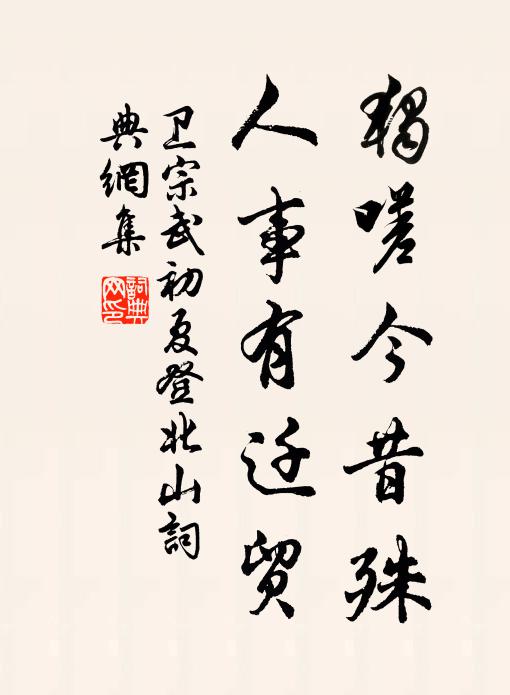 獨嗟今昔殊
人事有迁貿
卫宗武初夏登北山詞
典網集
詞典网印